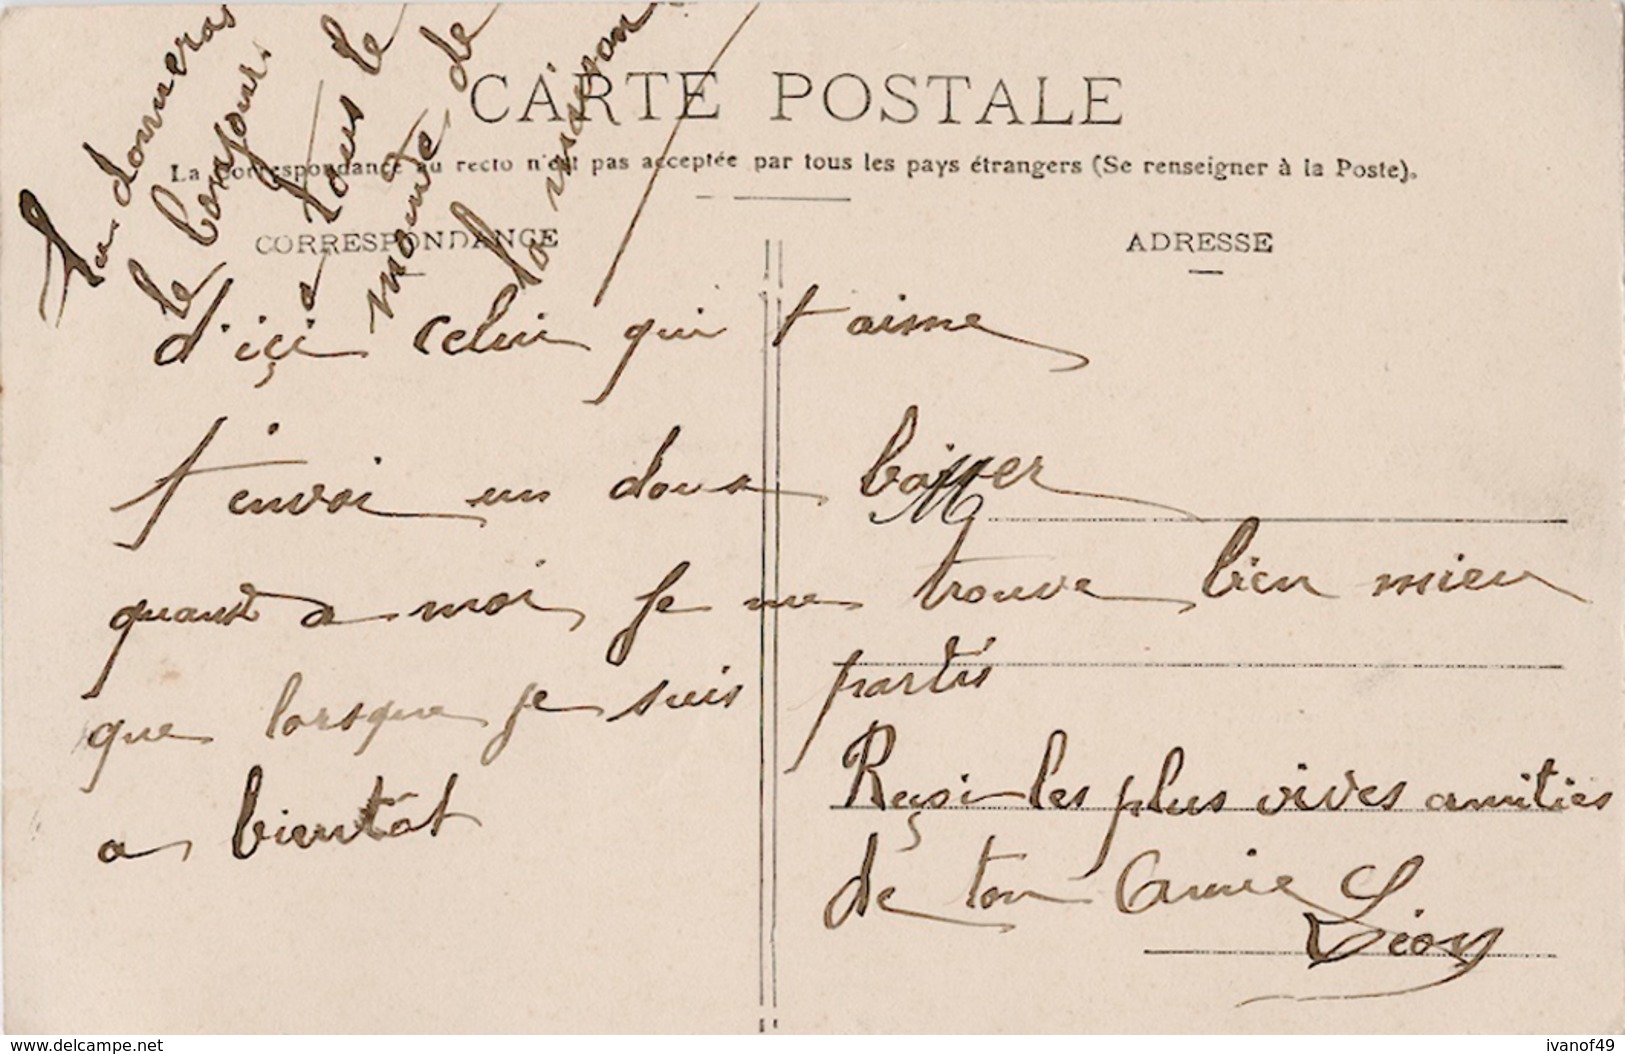 Tu donneras
le bonjour
a tous le
monde de
la maison
CARTE POSTALE
La Correspondance au recto n'est pas acceptée par tous les pays étrangers (Se renseigner à la Poste).
CORRESPONDANCE
ADRESSE
d'içi celui qui t'aime
t'envoi un doux baisser
M
quand a moi je me trouve bien mieu
que lorsque je suis partis
a bientôt
Reçoi les plus vives amitiés
de ton Amie
Léon
www.delcampe.net
ivanof49